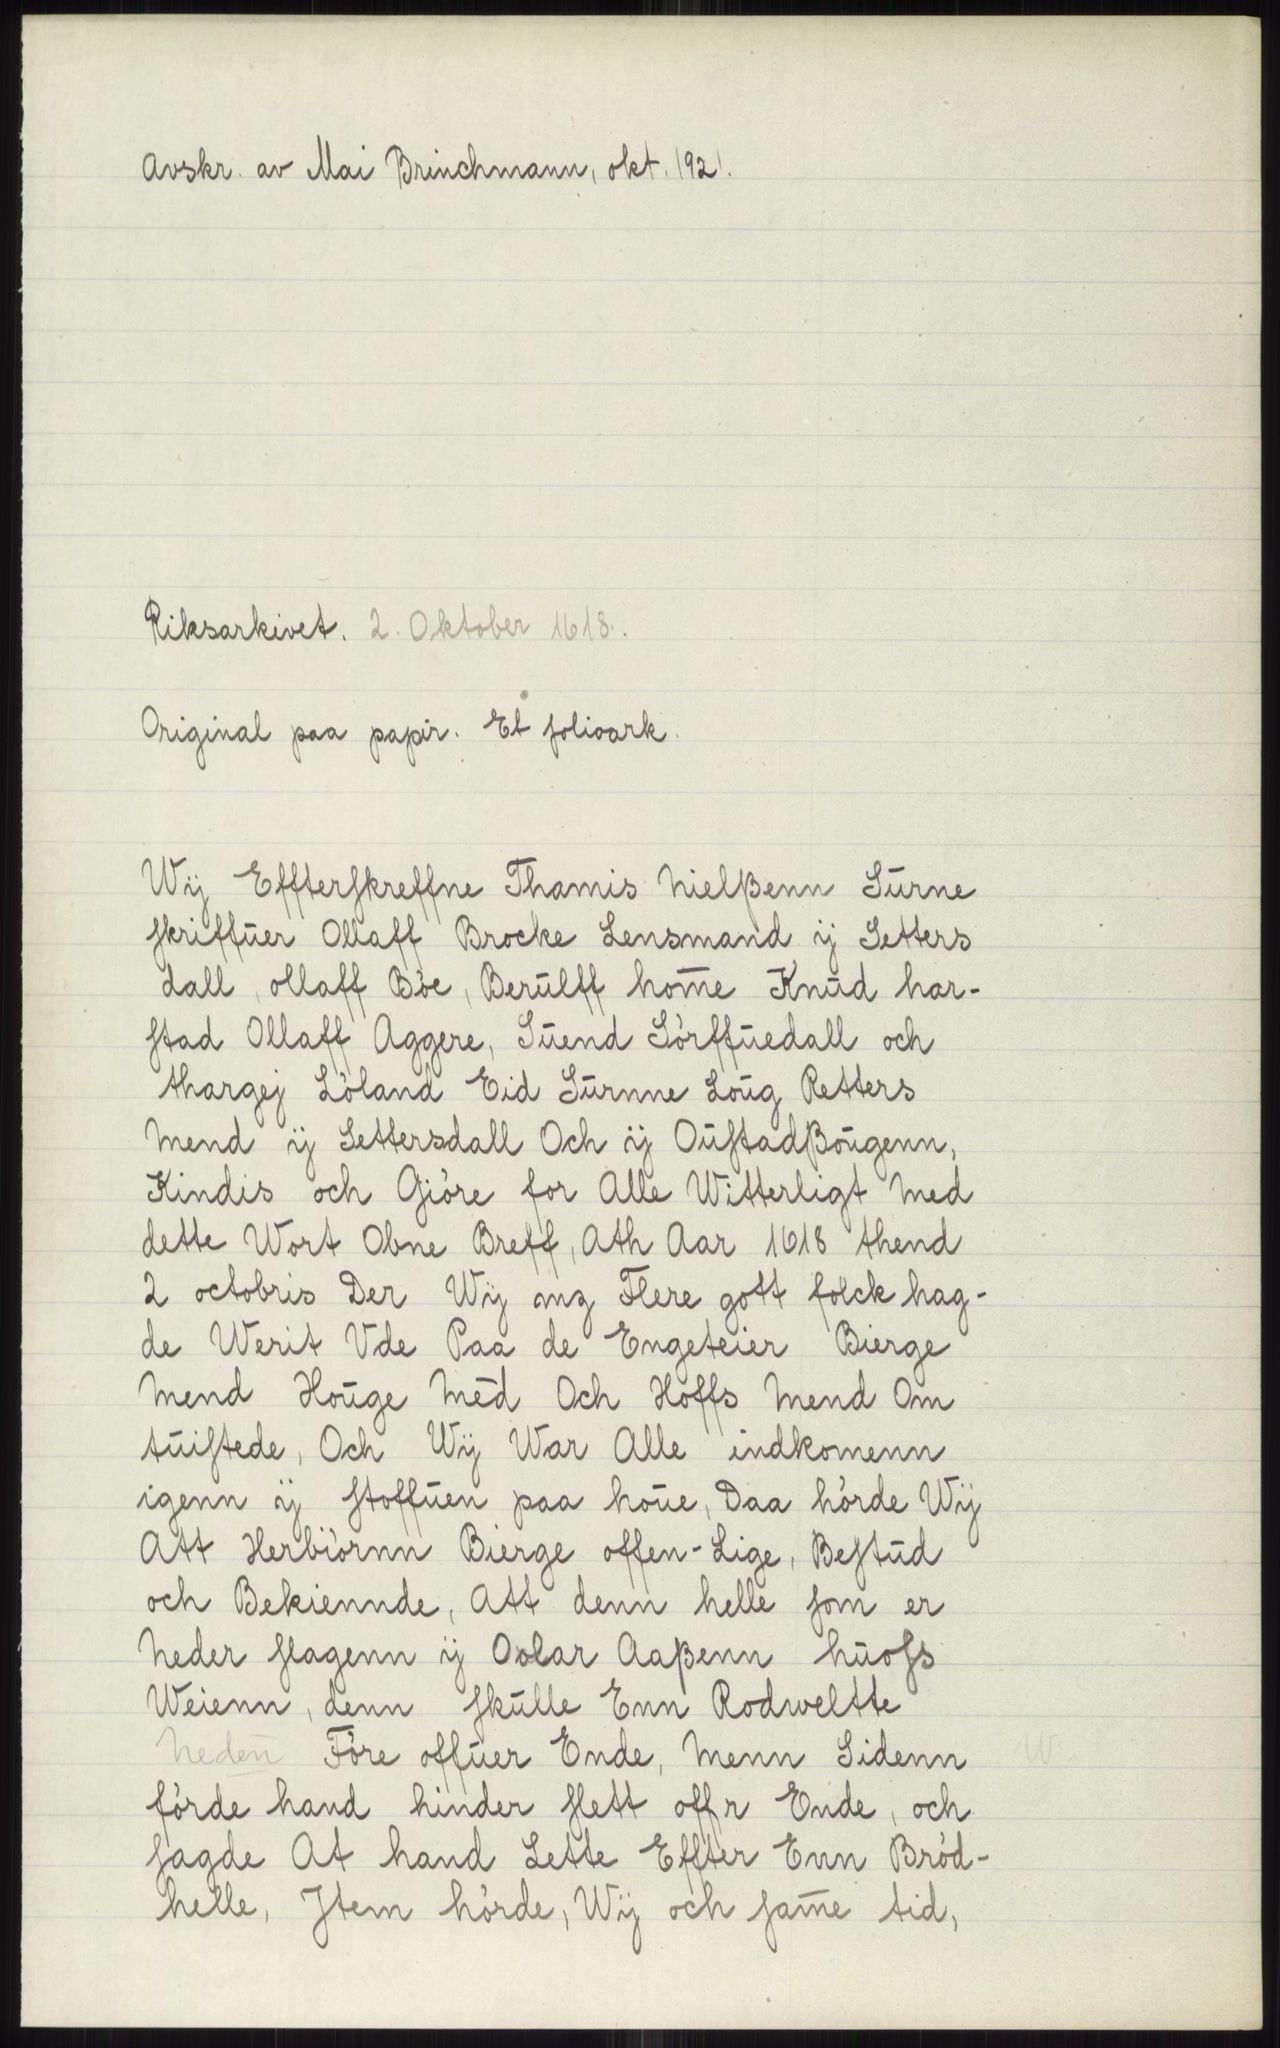 Avskr. av Mai Brinchmann, okt. 1921.
Riksarkivet. 2. Oktober 1618.
Original paa papir. Et folioark.
Wij Effterſkreffne Thamis Nielßenn Surne
ſkriffuer Ollaff Brocke Lensmand ij Setters
dall, ollaff Böe, Berulff hom̅e Knud har-
ſtad Ollaff Aggere, Suend Sörffuedall och
thargej Löland Eid Surnne Loug Retters
Mend ij Settersdall Och ij Ouſtadßougenn,
Kindis och Giöre for Alle Witterligt Med
dette Wort Obne Breff, Ath Aar 1618 thend
2 octobris Der Wij mz Flere gott folck hag-
de Werit Vde Paa de Engeteier Bierge
Mend Houge Me̅d Och Hoffs Mend Om
tuiſtede, Och Wij War Alle indkomenn
igenn ij ſtoffuen paa houe, Daa hörde Wij
Att Herbiörnn Bierge offen-Lige, Beſtud
och Bekiennde, Att denn helle ſom er
Neder ſlagenn ij Oolar Aaßenn huoſs
Weienn, denn ſkulle Enn Rodweltte
Neden̅ Före offuer Ende, Menn Sidenn
förde hand hinder ſlett offr Ende, och
ſagde At hand Lette Effter Enn Bröd-
helle, Jtem hörde, Wij och ſam̅e tid,